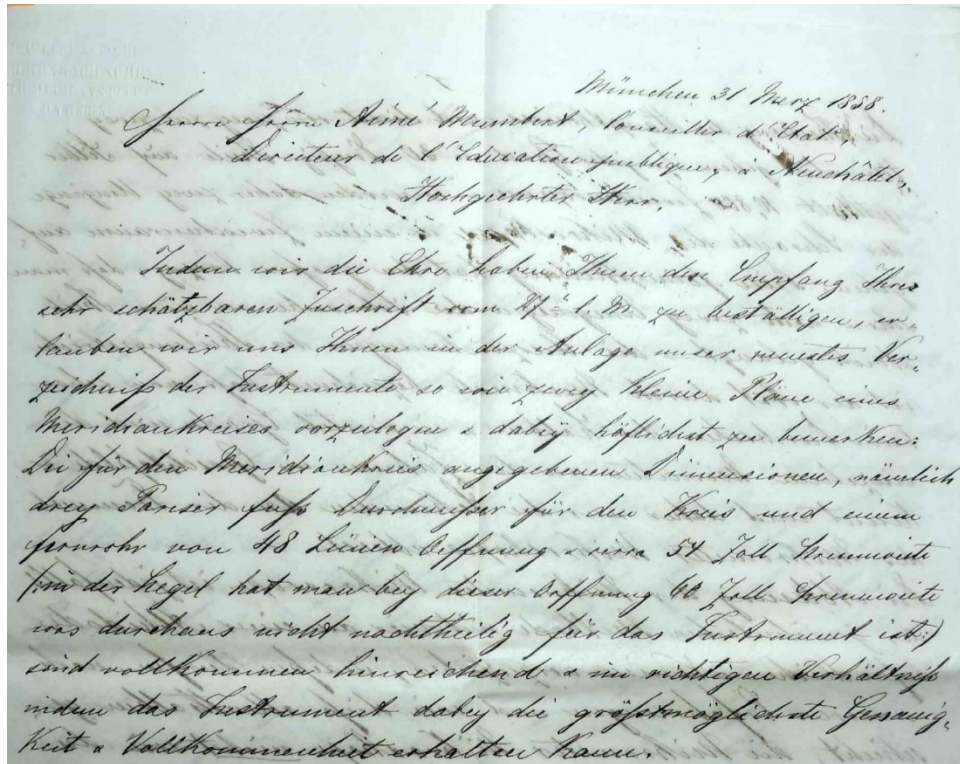 München 31 Merz 1858.
Herrn Herrn Aimé Humbert, Conseiller d'Etat,
Directeur de l'Education publique, à Neuchâtel,
Hochgeehrter Herr,
Indem wir die Ehre haben Ihnen den Empfang Ihrer
sehr schätzbaren Zuschrift vom l. M. zu bestättigen, er-
lauben wir uns Ihnen in der Anlage unser neuestes Ver-
zeichniß der Instrumente so wie zwey kleine Pläne eines
Meridiankreises vorzulegen & dabey höflichst zu bemerken:
Die für den Meridiankreis angegebenen Dimensionen, nämlich
drey Pariser Fuß Durchmeßer für den Kreis und einem
Fernrohr von 48 Linien Oeffnung & circa 54 Zoll Brennweite
(: in der Regel hat man bey dieser Oeffnung 60 Zoll Brennweite
was durchaus nicht nachtheilig für das Instrument ist :)
sind vollkommen hinreichend & im richtigen Verhältniß
indem das Instrument dabey die größtmöglichste Genauig-
keit & Vollkommenheit erhalten kann.